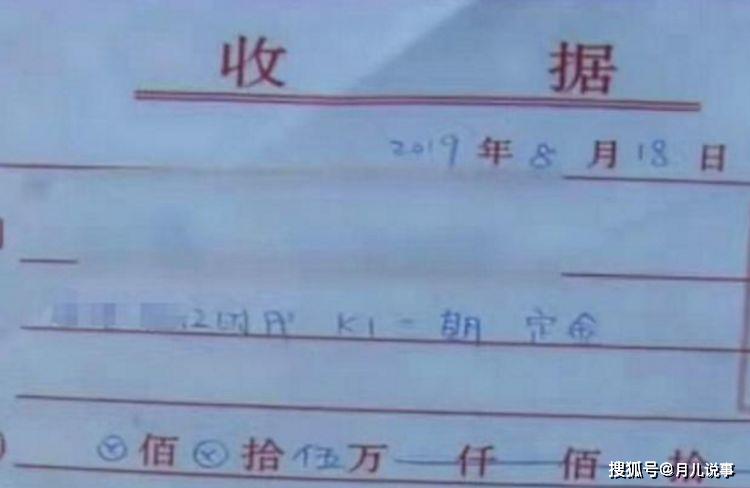 收 据
2019 年 8 月 18 日
时代 K1 一期 定金
佰 拾 伍 万 仟 佰 拾
搜狐号@月儿说事